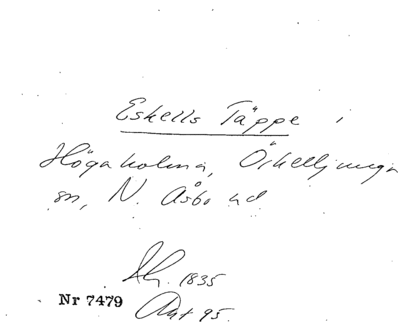 Eskells Täppe i
Högaholma, Örkelljunga
sn, N. Åsbo hd
Sk. 1835
Nr 7479
Akt 95.